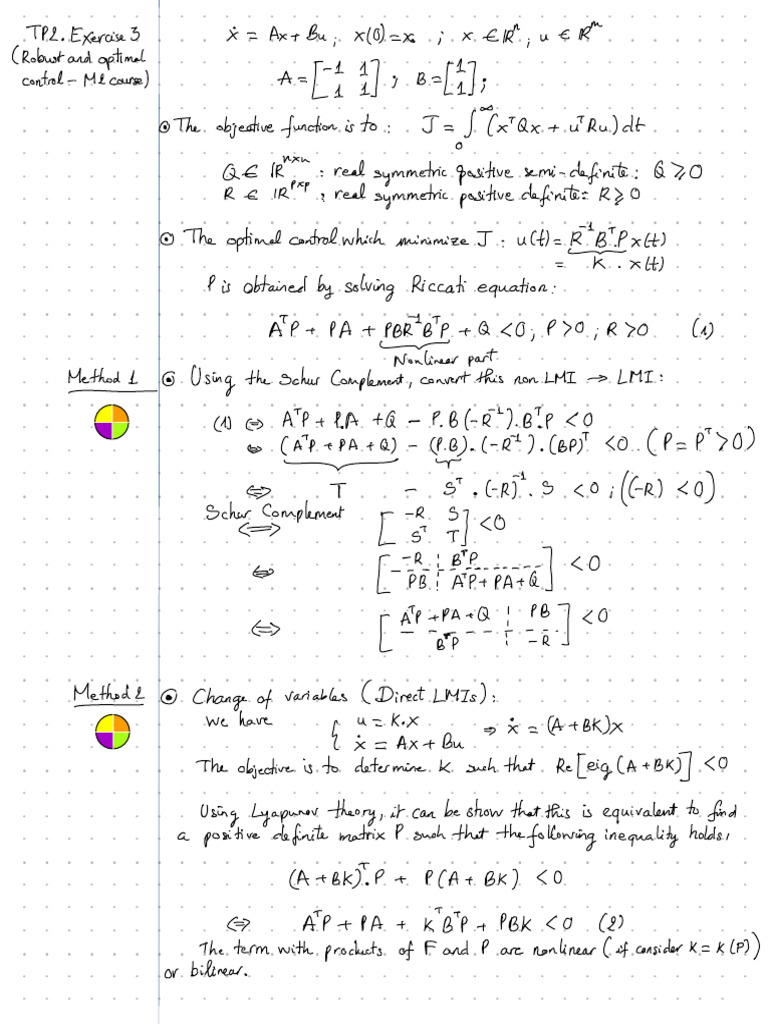 TP2. Exercise 3
(Robust and optimal
control - M2 course)
ẋ = Ax + Bu ; x(0) = x₀ ; x ∈ ℝⁿ ; u ∈ ℝᵐ
A = [-1 1; 1 1] ; B = [1; 1] ;
The objective function is to : J = ∫₀^∞ (xᵀQx + uᵀRu) dt
Q ∈ ℝⁿˣⁿ : real symmetric positive semi-definite : Q ≥ 0
R ∈ ℝᵖˣᵖ : real symmetric positive definite : R ≥ 0
The optimal control which minimize J : u(t) = R⁻¹BᵀP x(t)
= K . x(t)
P is obtained by solving Riccati equation :
AᵀP + PA + PBR⁻¹BᵀP + Q < 0 ; P > 0 ; R > 0 (1)
Nonlinear part
Method 1
Using the Schur Complement, convert this non LMI → LMI :
(1) ⇔ AᵀP + P.A + Q - P.B(-R⁻¹).Bᵀ.P < 0
⇔ (AᵀP + PA + Q) - (P.B).(-R⁻¹).(BP)ᵀ < 0 . (P = Pᵀ > 0)
⇔ T - Sᵀ . (-R)⁻¹ . S < 0 ; ((-R) < 0)
Schur Complement
⇔ [-R S; Sᵀ T] < 0
⇔ [-R BᵀP; PB AᵀP + PA + Q] < 0
⇔ [AᵀP + PA + Q PB; BᵀP -R] < 0
Method 2
Change of variables (Direct LMIs) :
we have { u = K.x
ẋ = Ax + Bu ⇒ ẋ = (A + BK)x
The objective is to determine K such that Re[eig(A + BK)] < 0
Using Lyapunov theory, it can be show that this is equivalent to find
a positive definite matrix P such that the following inequality holds,
(A + BK)ᵀ.P + P(A + BK) < 0
⇔ AᵀP + PA + KᵀBᵀP + PBK < 0 (2)
The term with products of F and P are nonlinear (if consider K = K(P))
or bilinear.